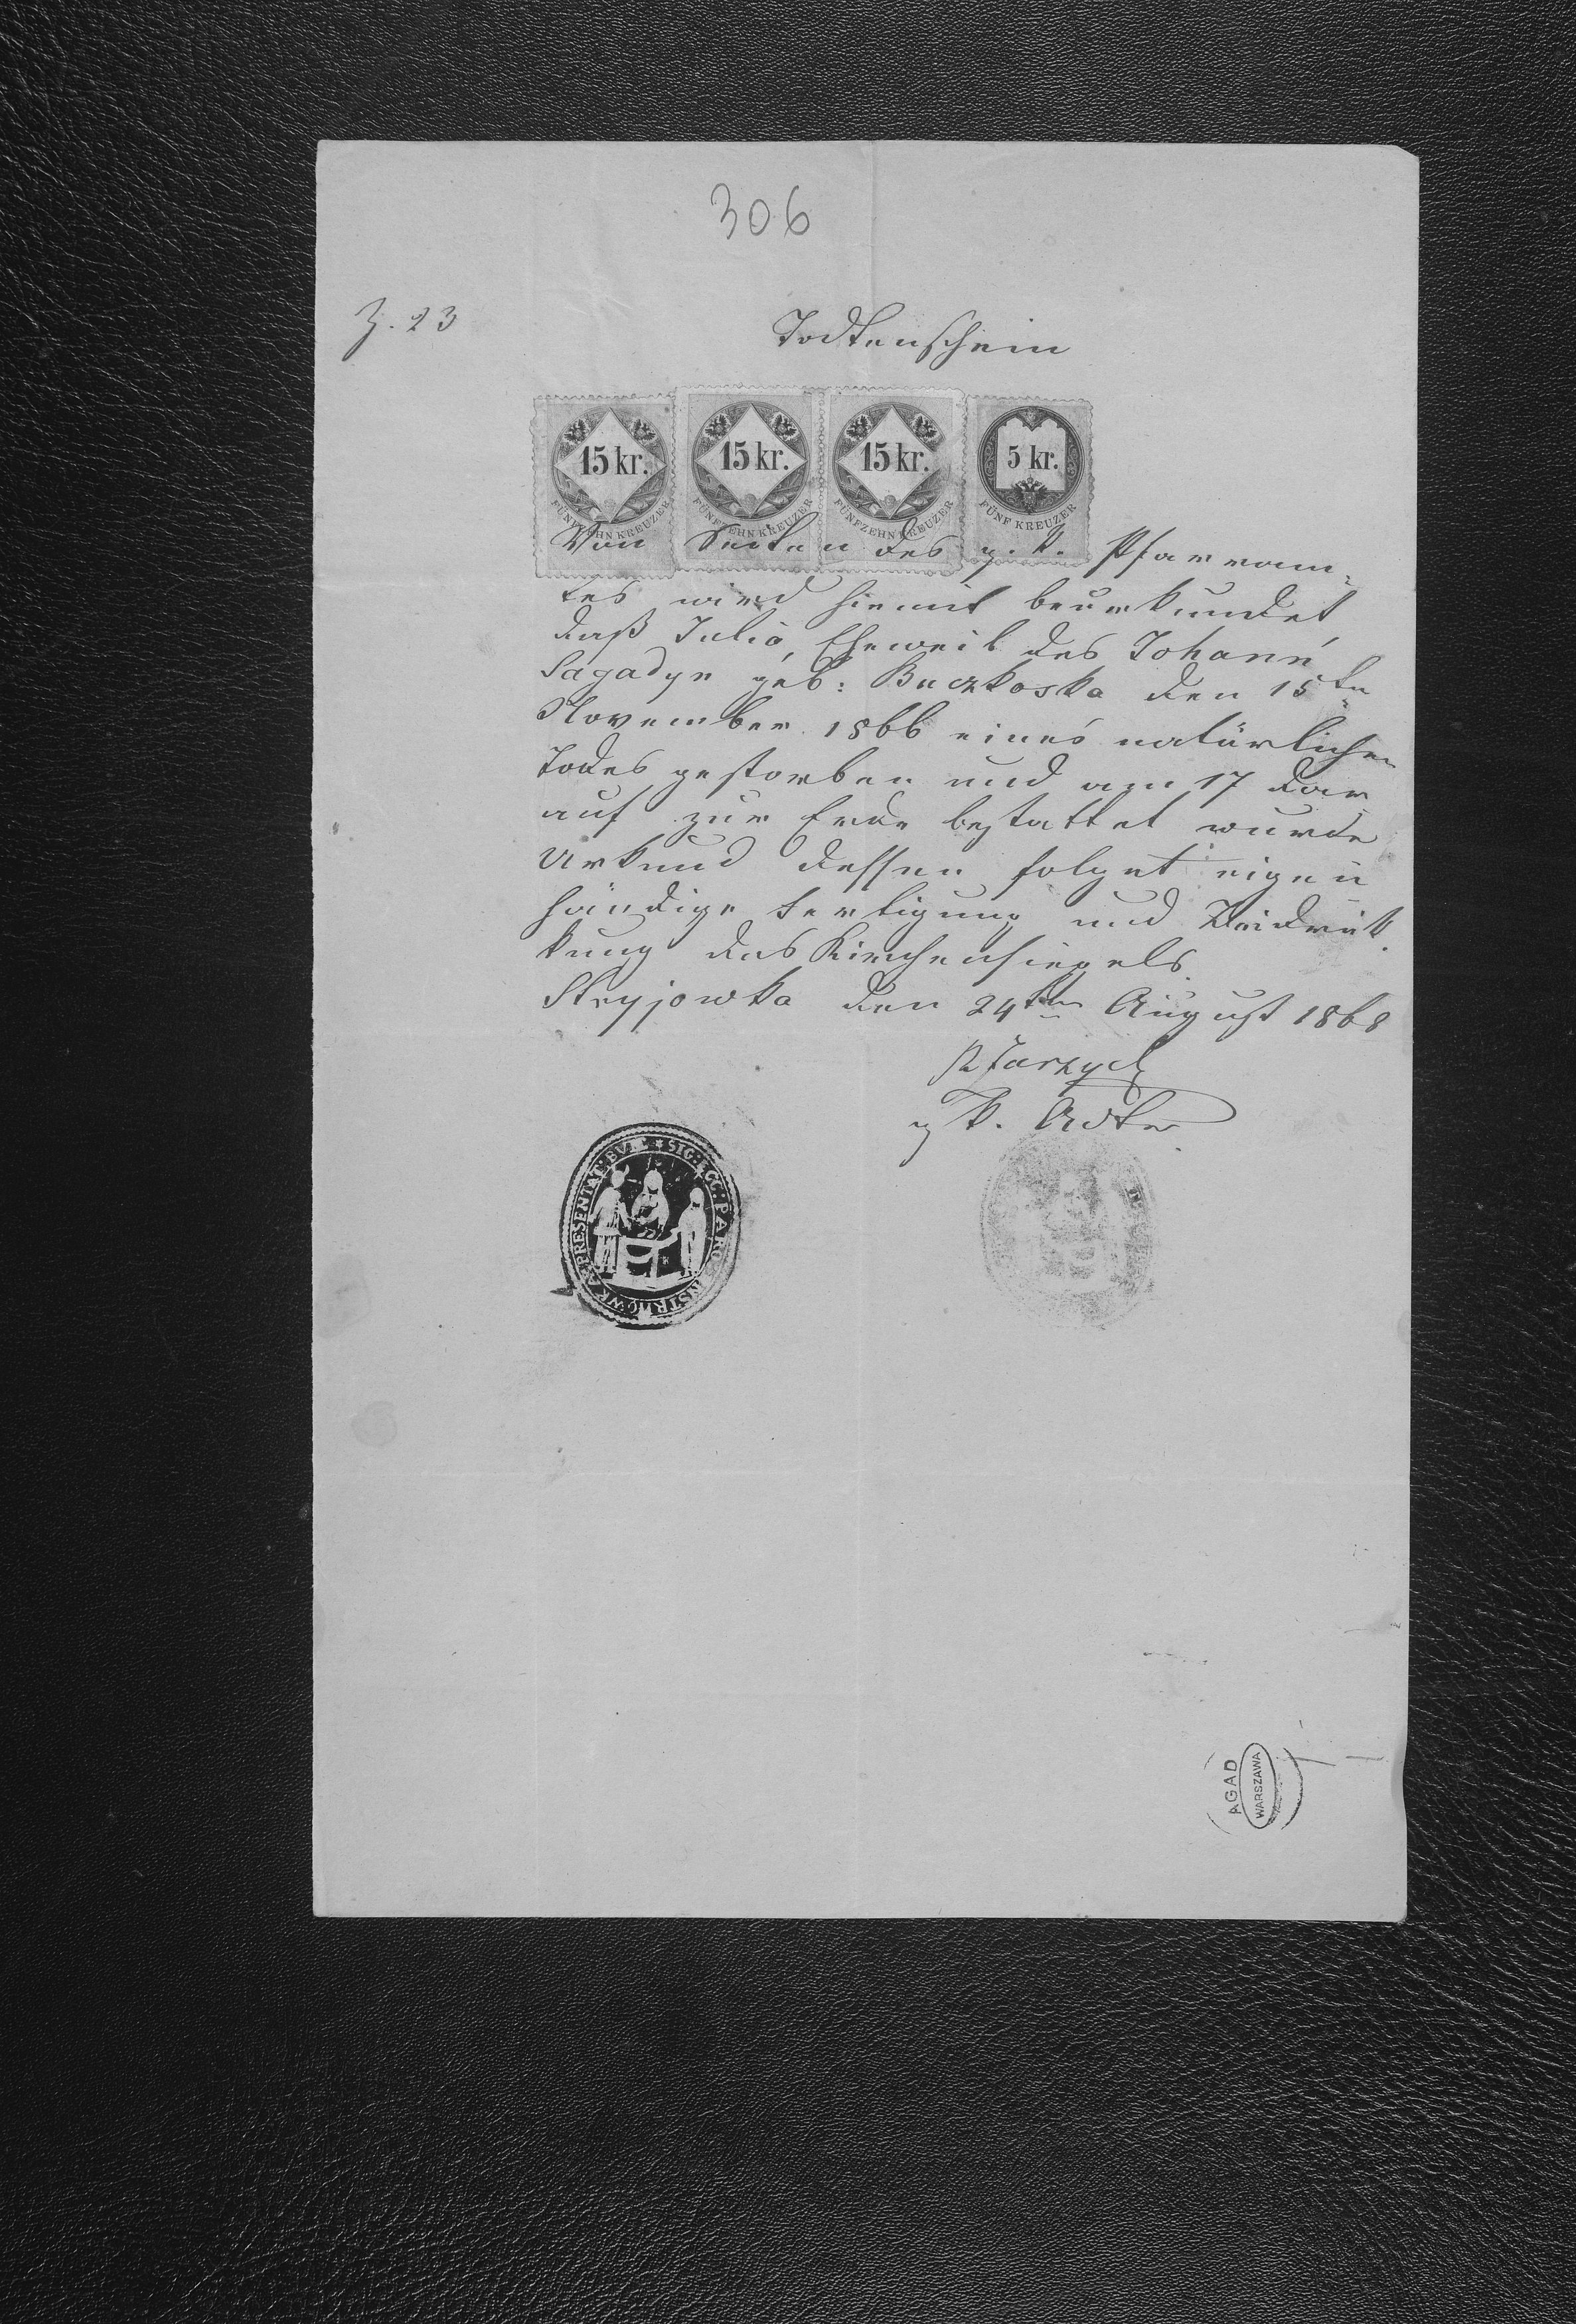 306
Z. 23
Todtenschein
15 kr. 15 kr. 15 kr. 5 kr.
FÜNFZEHN KREUZER FÜNFZEHN KREUZER FÜNFZEHN KREUZER FÜNF KREUZER
Von Seiten des g. k. Pfarram=
tes wird hiemit beurkundet
daß Julia, Eheweib des Johann
Sagadyn geb: Buczkoska den 15ten
November 1866 eines natürlichen
Todes gestorben und am 17 dar
auf zur Erde bestattet wurde
Urkund dessen folgt eigen
händige Fertigung und Beidrük
kung des Kirchensiegels
Stryjowka den 24ten August 1868
g k.
SIG:
PRESENTAT:
AGAD
WARSZAWA